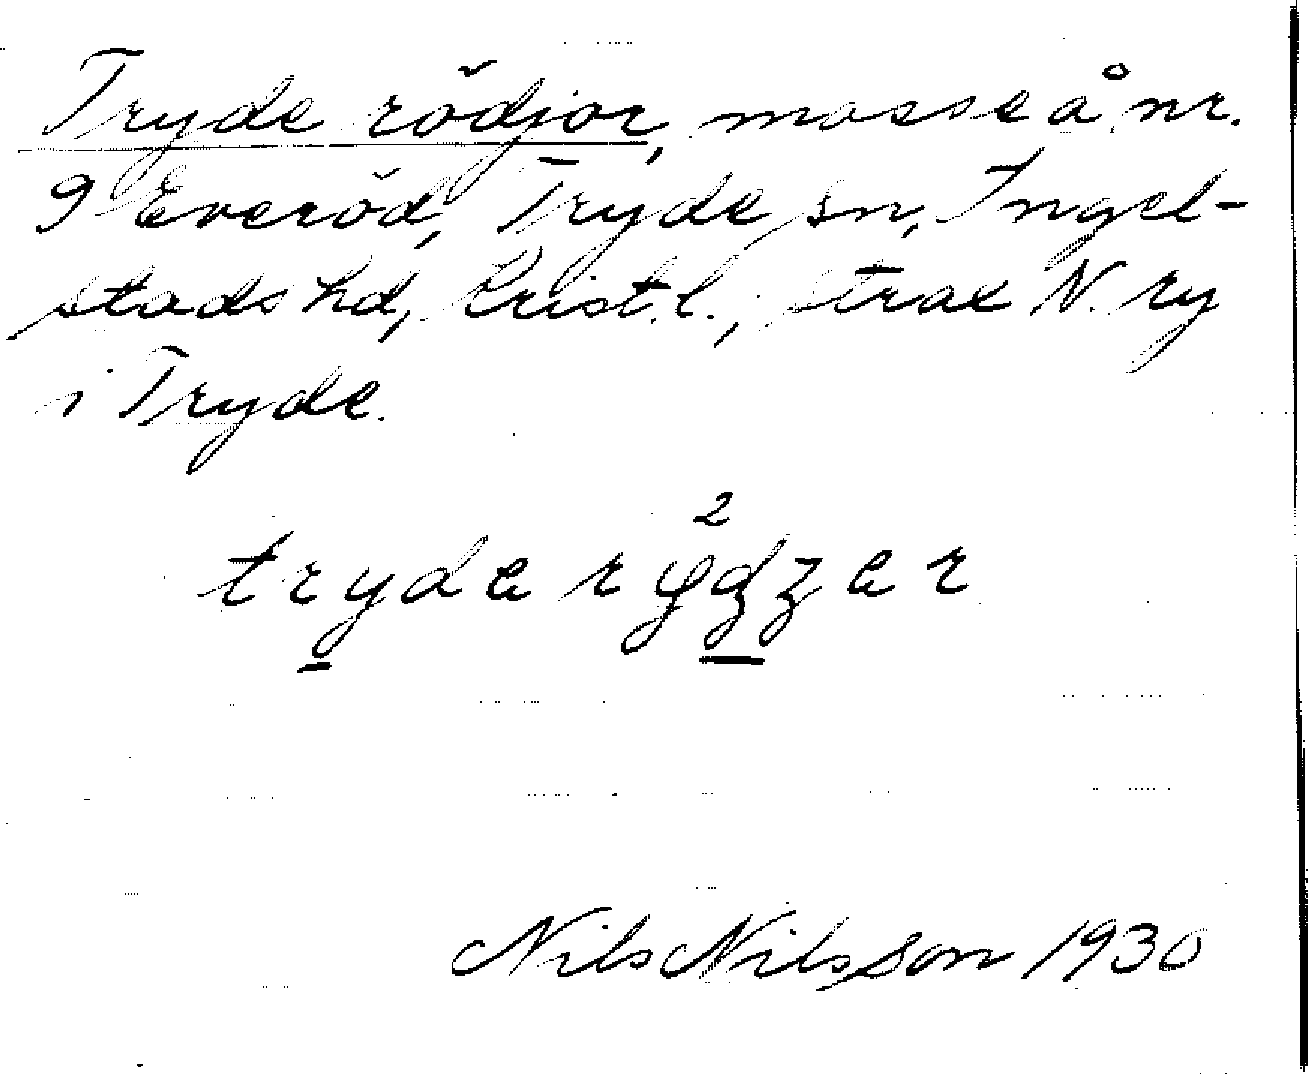 Tryde rödjor, mosse å nr.
9 Everöd, Tryde sn, Ingel-
stads hd, Krist.l., strax N. ry
i Tryde.
2
tryde
Nils Nilsson 1930